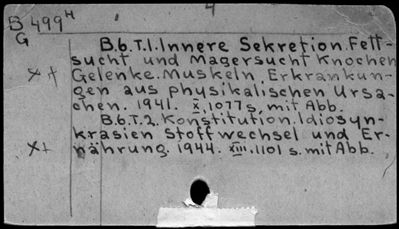 B 499 H
G
B.6.T.1. Innere Sekretion. Fett-
sucht und Magersucht Knochen
Gelenke. Muskeln, Erkrankun-
gen aus physikalischen Ursa-
chen. 1941. X, 1077 s, mit Abb.
B.6.T.2. Konstitution. Idiosyn-
krasien Stoffwechsel und Er-
nährung. 1944. XIII. 1101 s. mit Abb.